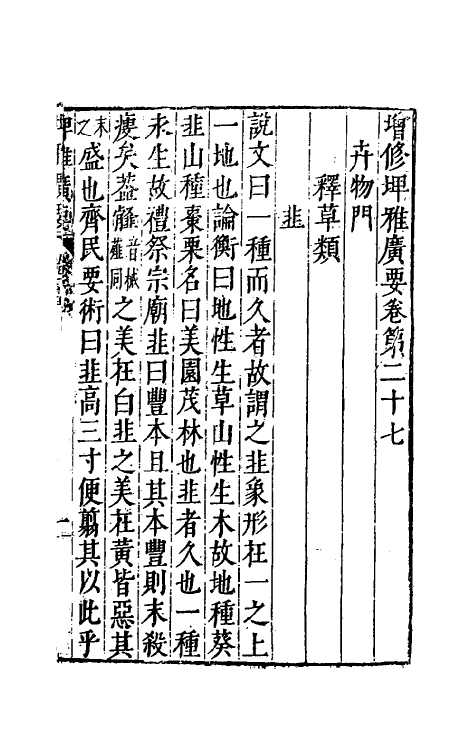 增修埤雅廣要卷第二十七
卉物門
釋草類
韭
說文曰一種而久者故謂之韭象形在一之上
一地也論衡曰地性生草山性生木故地種葵
韭山種棗栗名曰美園茂林也韭者久也一種
永生故禮祭宗廟韭曰豐本且其本豐則末殺
瘦矣葢䪥音械薤同之美在白韭之美在黃皆惡其
末之盛也齊民要術曰韭高三寸便翦其以此乎
埤雅廣要